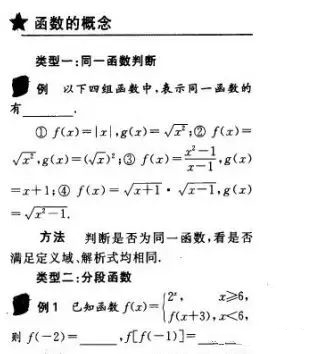 ★ 函数的概念
类型一:同一函数判断
例 以下四组函数中,表示同一函数的
有______.
① f(x)=|x|,g(x)=√x²;② f(x)=
√x²,g(x)=(√x)²;③ f(x)=(x²-1)/(x-1),g(x)
=x+1;④ f(x)=√(x+1)·√(x-1),g(x)
=√(x²-1).
方法 判断是否为同一函数,看是否
满足定义域、解析式均相同.
类型二:分段函数
例1 已知函数 f(x)={2ˣ, x≥6,
f(x+3),x<6,
则 f(-2)=______,f[f(-1)]=______